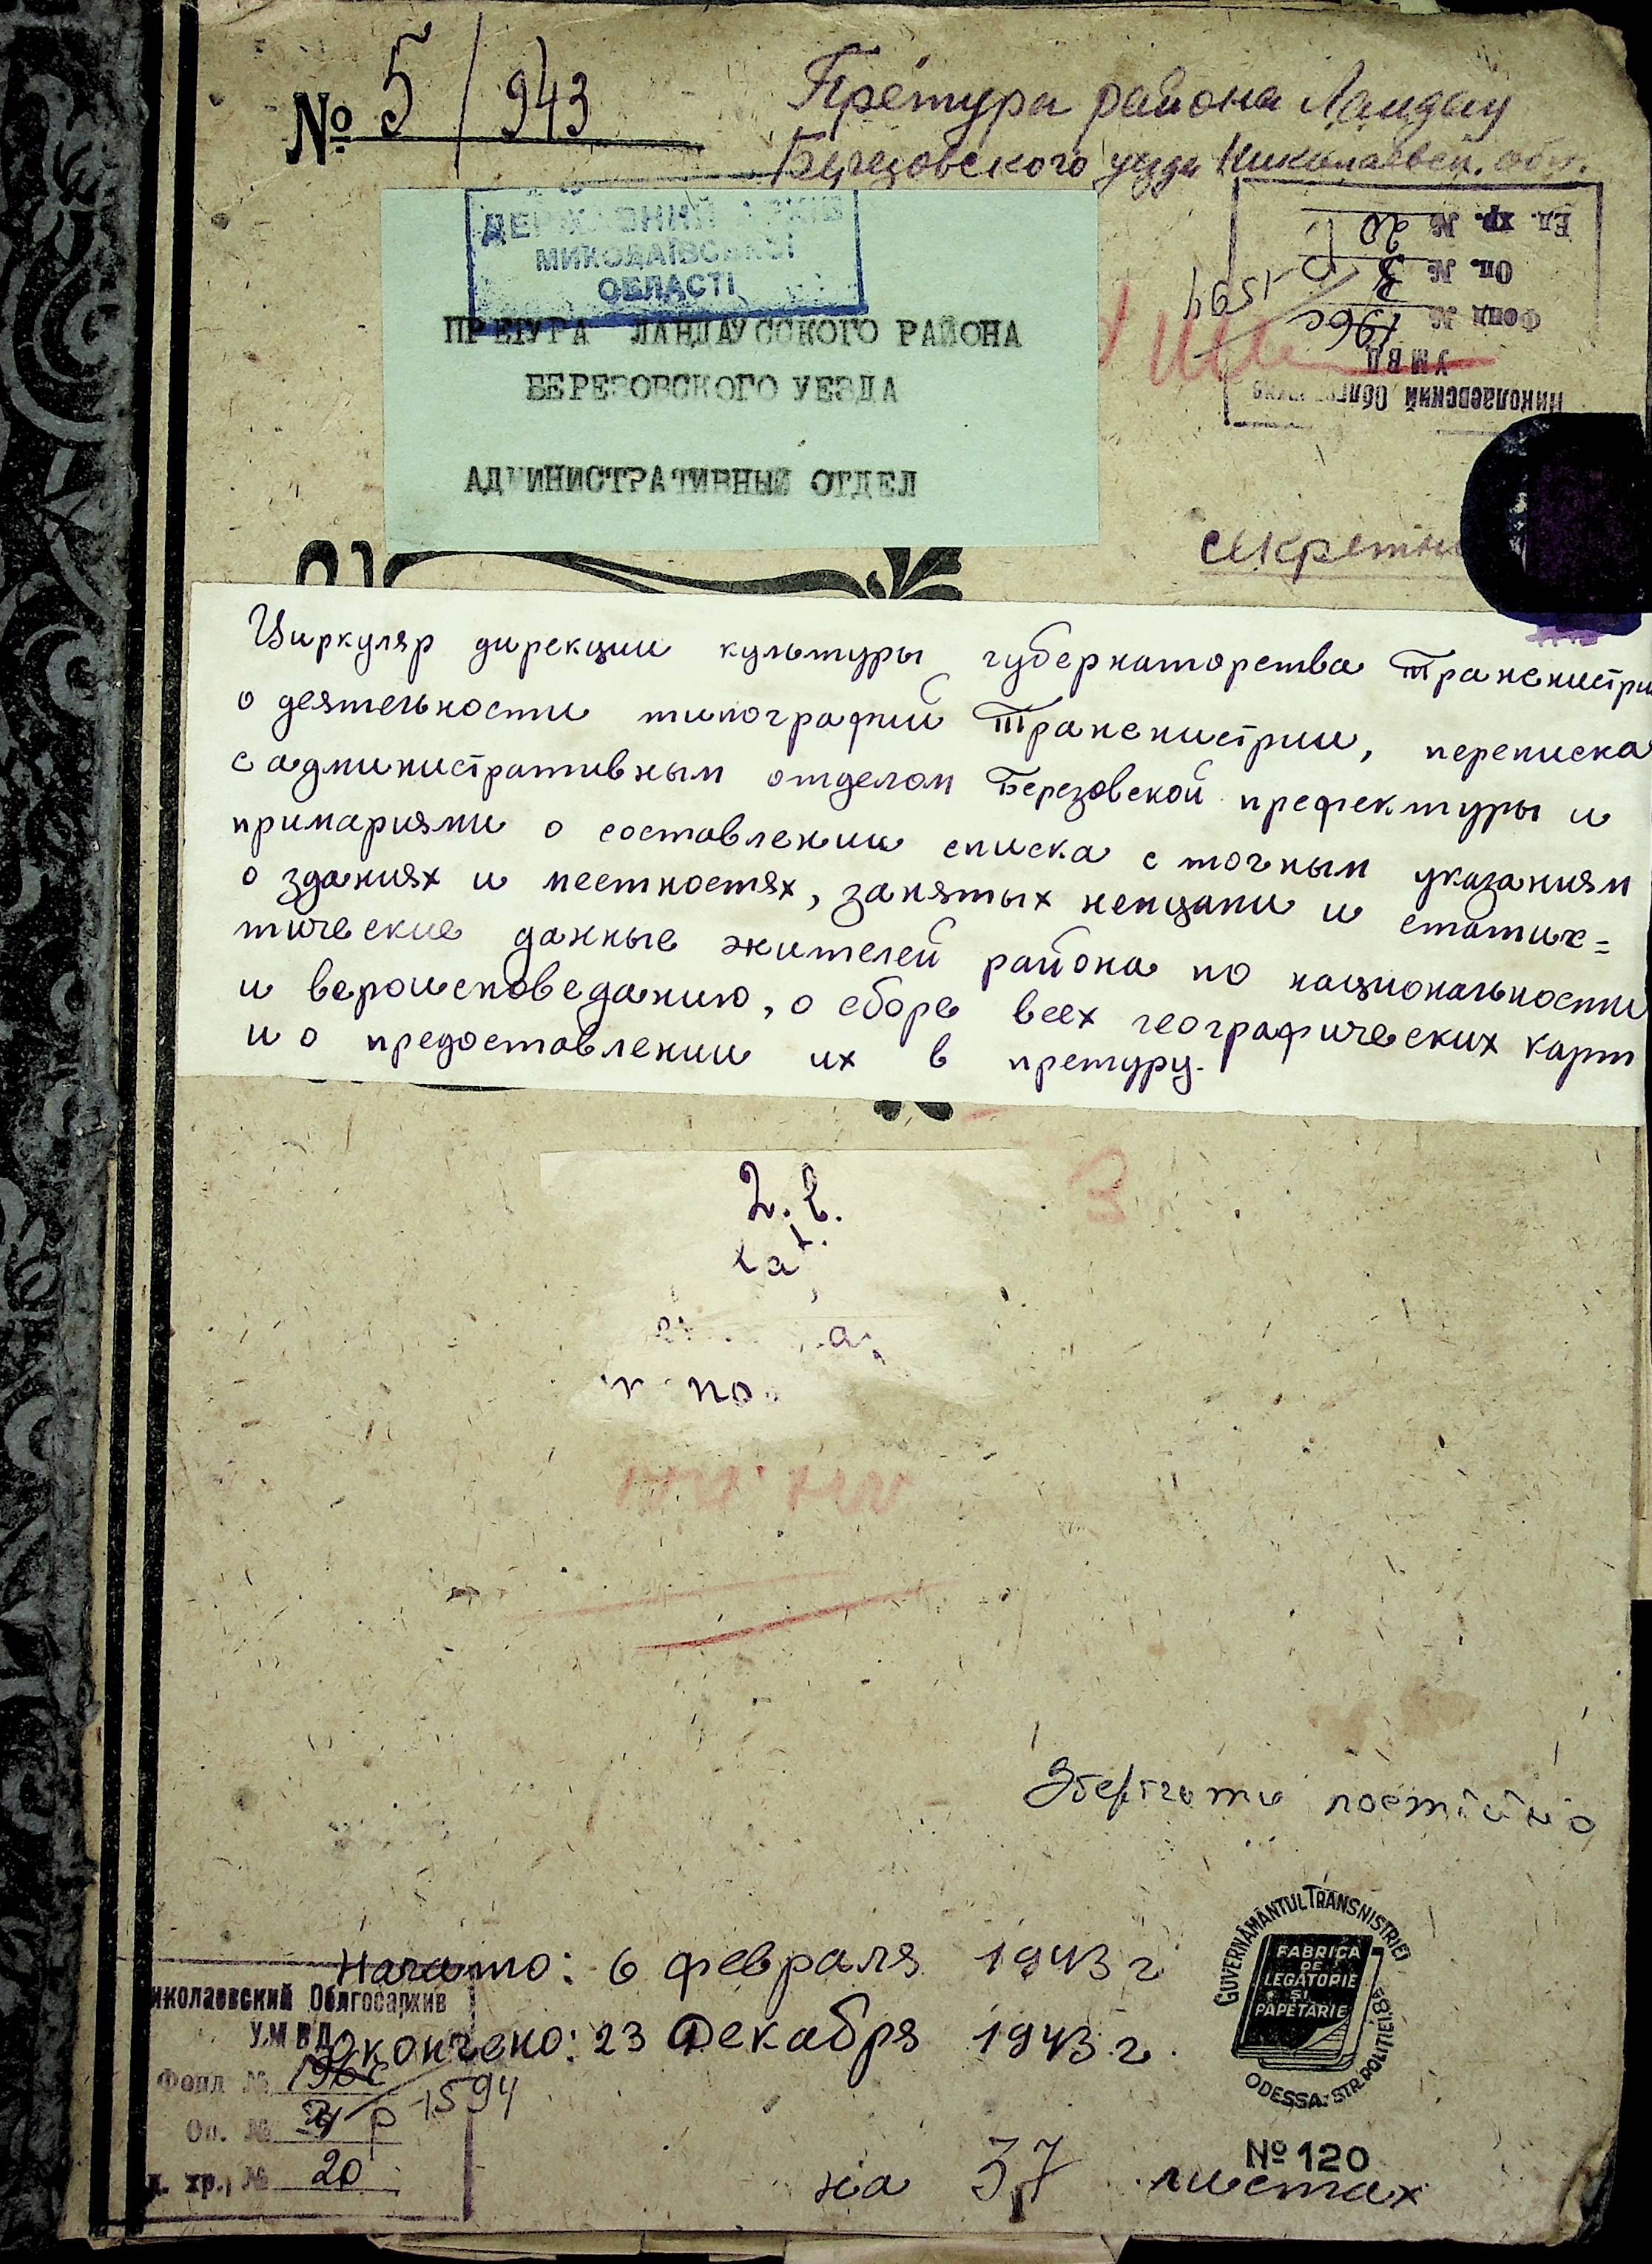 № 5/943
Претура района Ландау
Березовского уезда Николаевск. обл.
ДЕРЖАВНИЙ АРХІВ
МИКОЛАЇВСЬКОЇ
ОБЛАСТІ
Ед. хр. № 20
Оп. № 3
Фонд № 196с
Р-1594
УМВД
Николаевский Облгосархив
ПРЕТУРА ЛАНДАУССКОГО РАЙОНА
БЕРЕЗОВСКОГО УЕЗДА
АДМИНИСТРАТИВНЫЙ ОТДЕЛ
секретн
Циркуляр дирекции культуры губернаторства Транснистри
о деятельности типографий Транснистрии, переписка
с административным отделом Березовской префектуры и
примариями о составлении списка с точным указаниям
о зданиях и местностях, занятых немцами и статис=
тические данные жителей района по национальности
и вероисповеданию, о сборе всех географических карт
и о предоставлении их в претуру.
3
Зберігати постійно
Начато: 6 февраля 1943 г
Окончено: 23 Декабря 1943 г.
иколаевский Облгосархив
УМВД
Фонд № 196с
Р-1594
Оп. №
д. хр. № 20
GUVERNĂMÂNTUL TRANSNISTRIEI
FABRICA
DE
LEGĂTORIE
ȘI
PAPETĂRIE
ODESSA. STR. POLIȚIEI
№ 120
на 37 листах